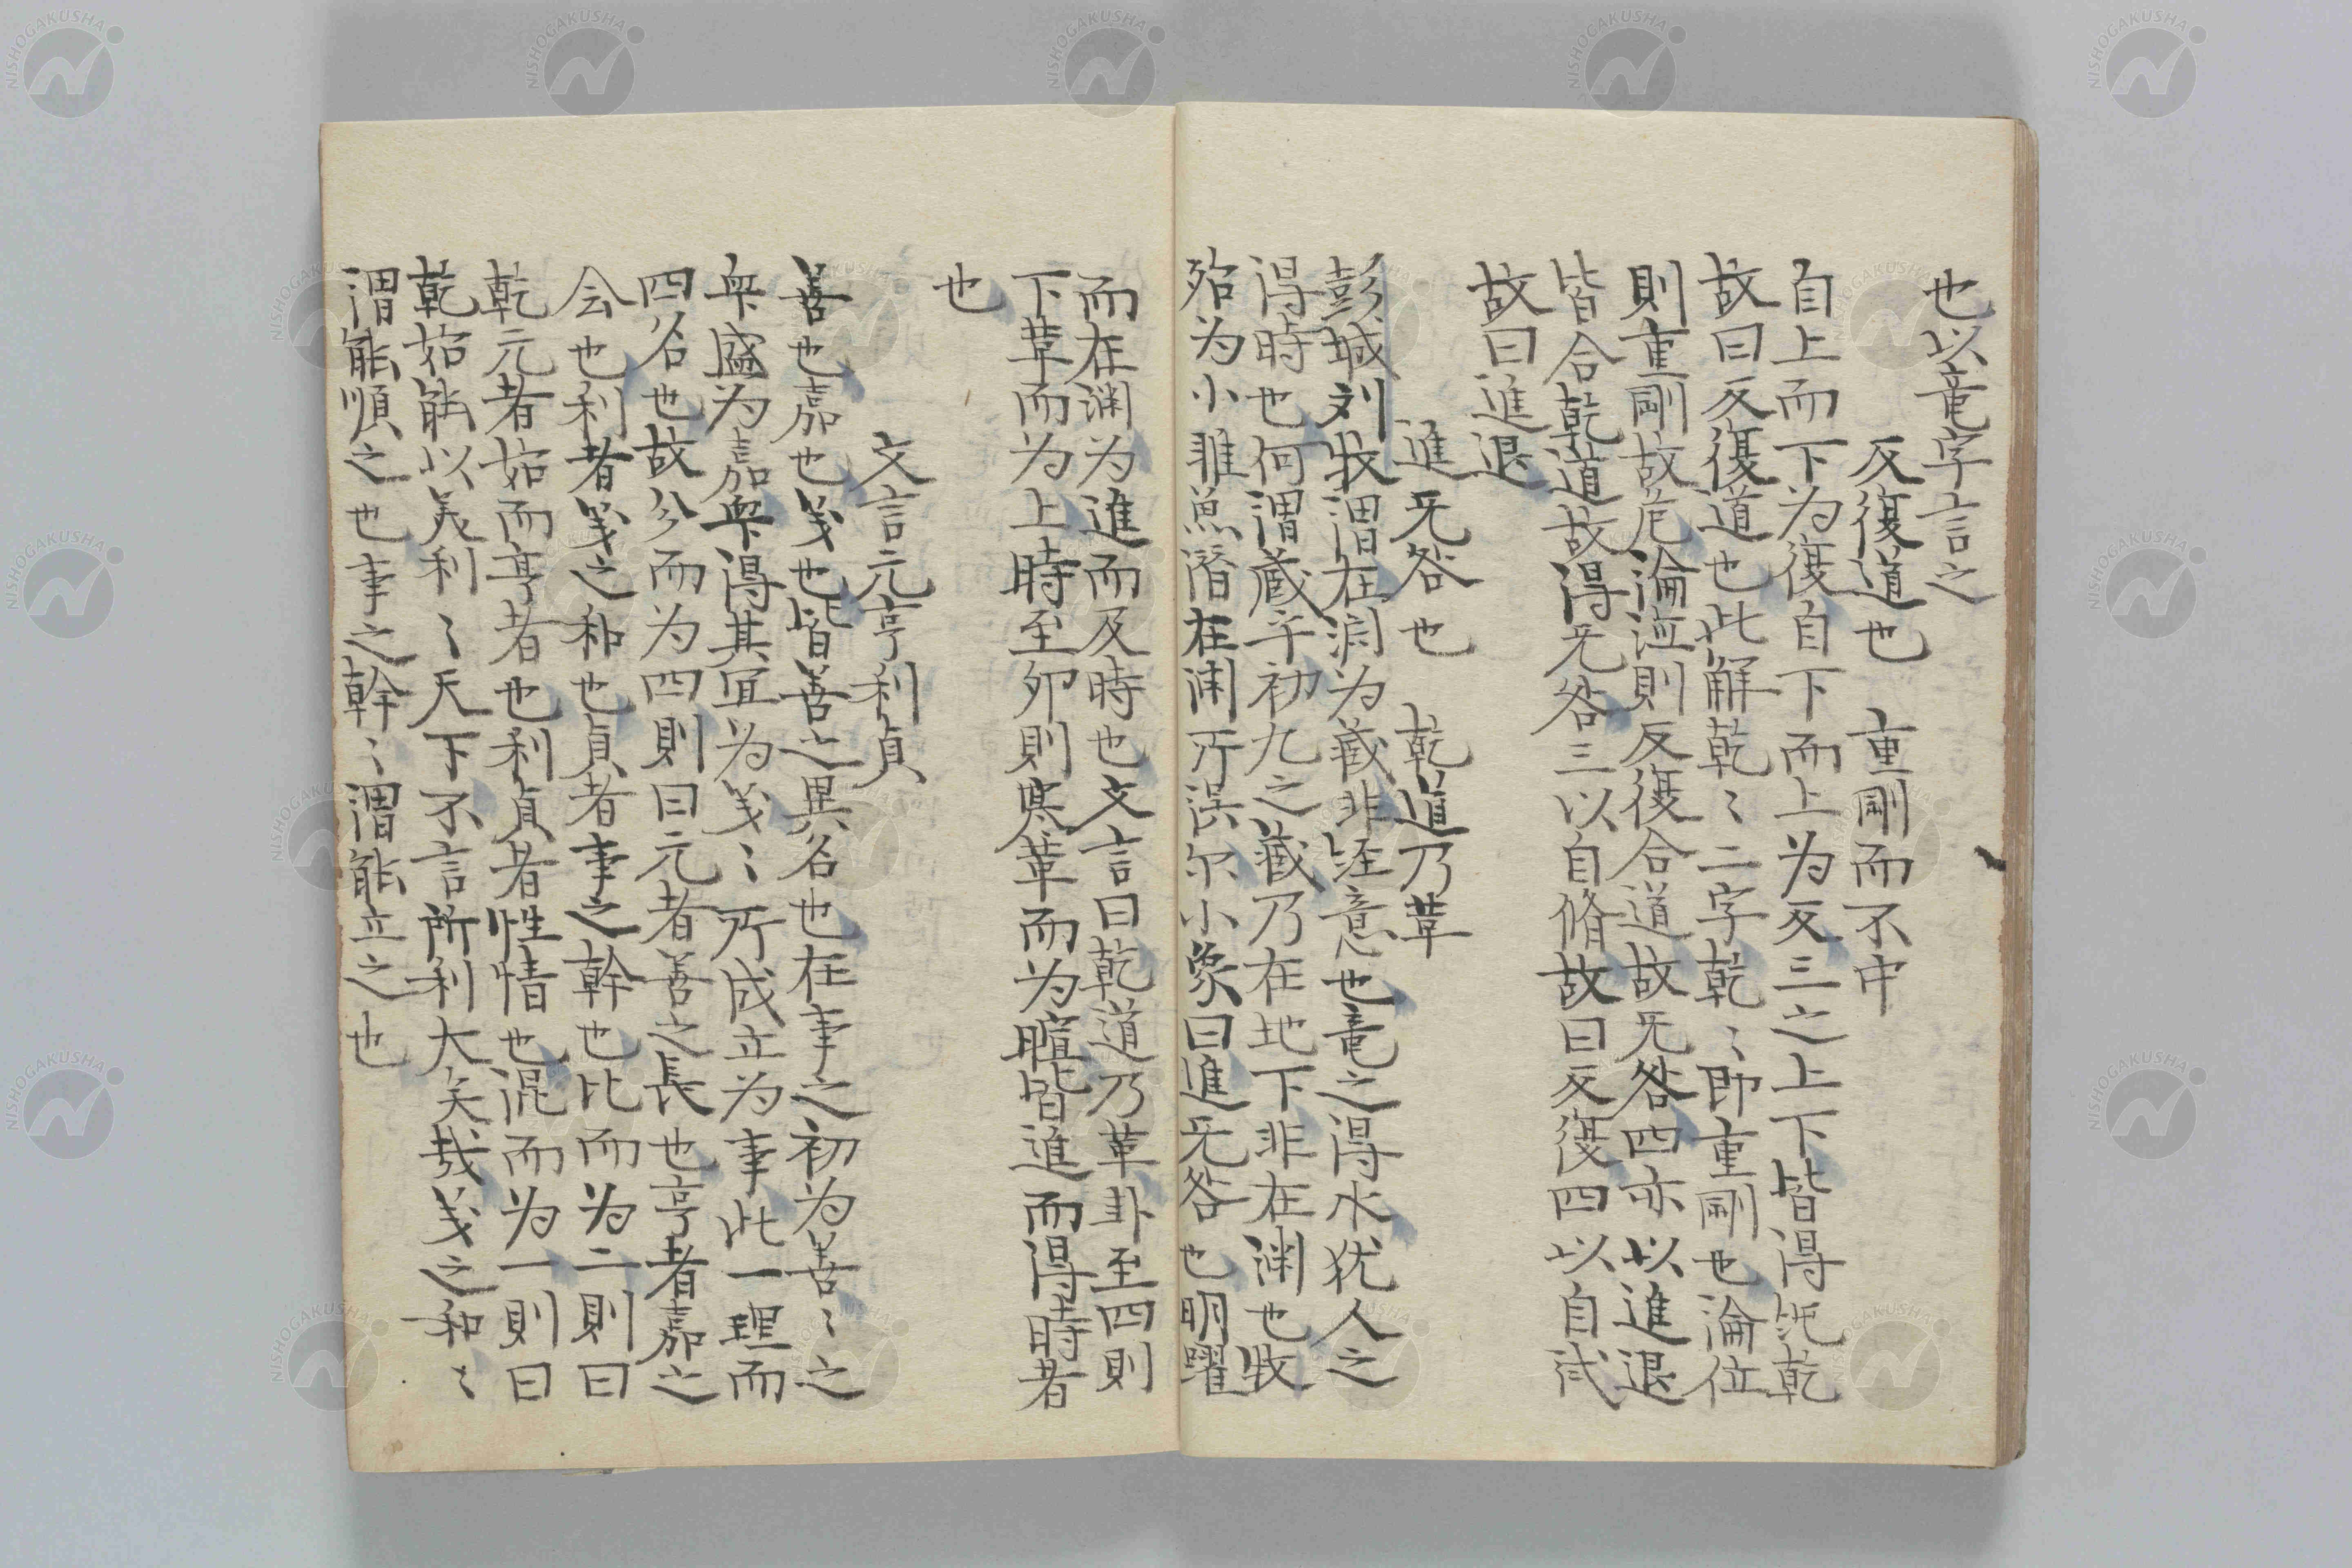 也以竜字言之
反復道也 重剛而不中
自上而下为復自下而上为反三之上下皆得純乾
故曰反復道也此解乾〻二字乾〻即重剛也淪位
則重剛故危淪這則反復合道故无咎四亦以進退
皆合乾道故得无咎三以自脩故曰反復四以自试
故曰進退
進无咎也 乾道乃革
彭城刘牧謂在渕为蔵非經意也竜之得水犹人之
得時也何謂蔵乎初九之蔵乃在地下非在渕也牧
殆为小雅魚潜在渕所误尔小象曰進无咎也明躍
而在渕为進而及時也文言曰乾道乃革卦至四則
下革而为上時至夘則寒革而为暄皆進而得時者
也
文言元亨利貞
善也嘉也义也皆善之異名也在事之初为善〻之
衆盛为嘉衆得其冝为义〻所成立为事此一理而
四名也故分而为四則曰元者善之長也亨者嘉之
会也利者义之和也貞者事之幹也比而为二則曰
乾元者始而亨者也利貞者性情也混而为一則曰
乾始能以美利〻天下不言所利大矣哉义之和〻
謂能順之也事之幹〻謂能立之也